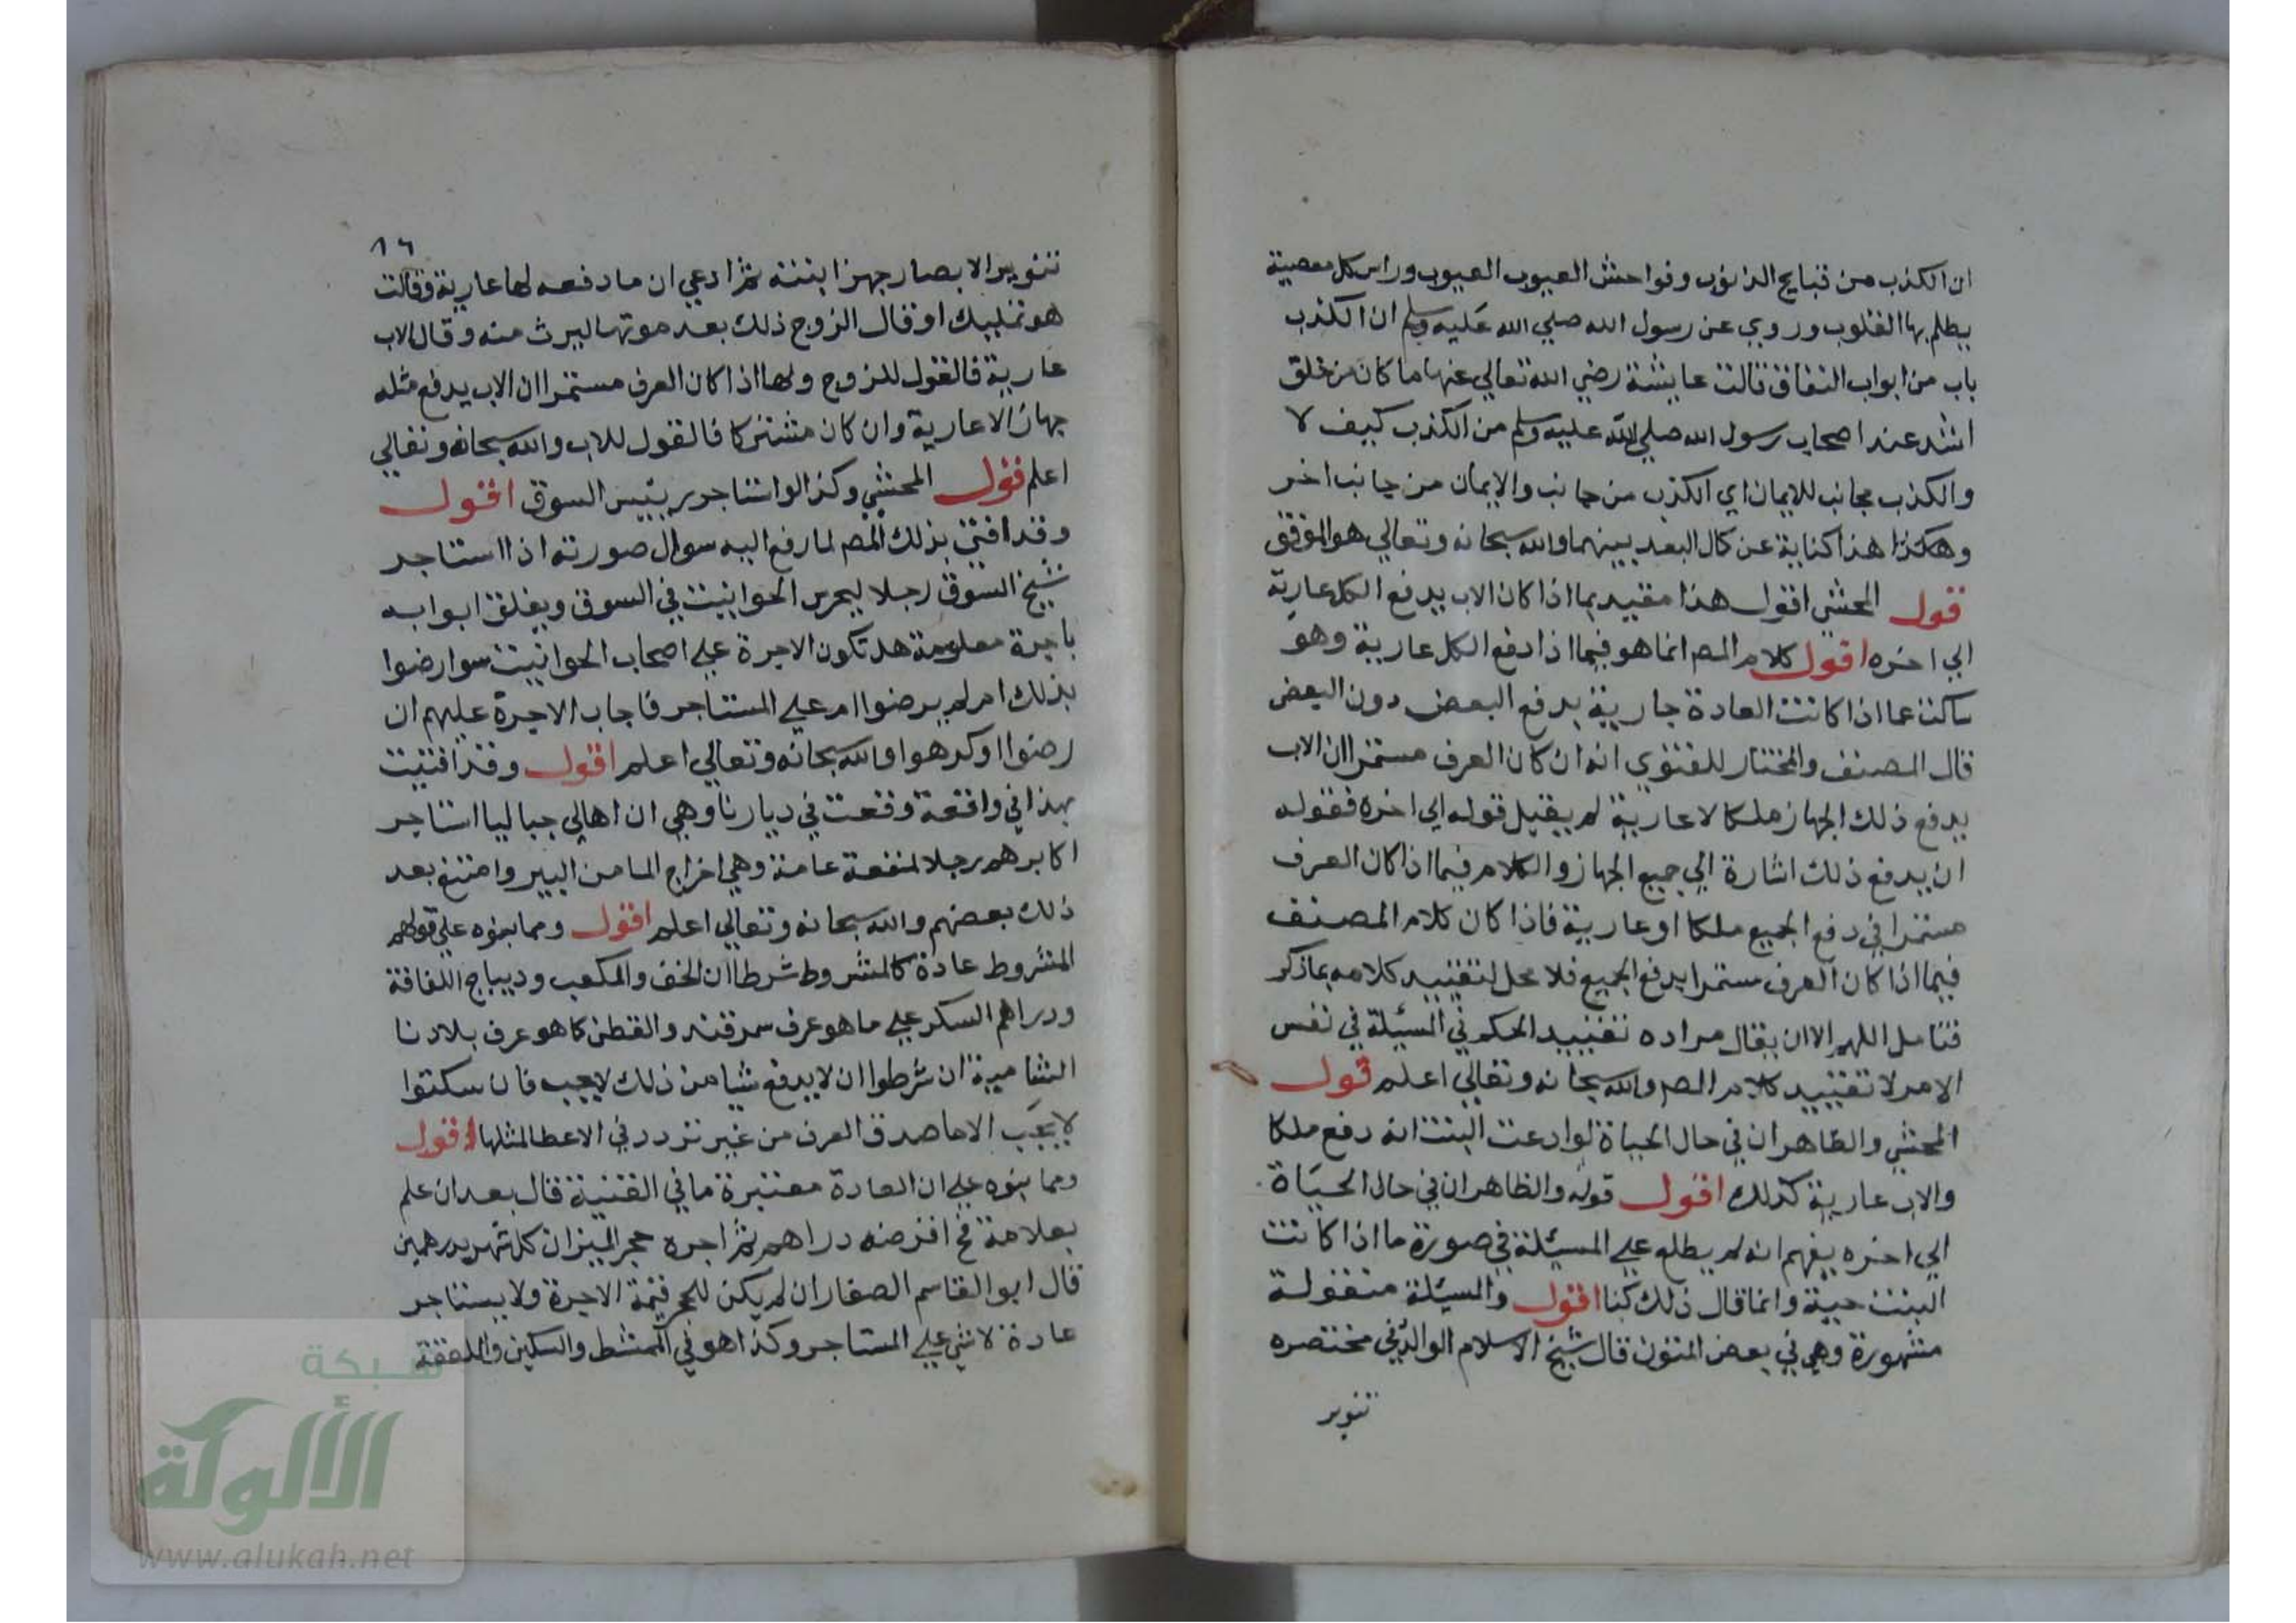 ان الكذب من قبايح الذنوب وفواحش العيوب العيوب وراس كل معصية
يظلم بها القلوب وروي عن رسول الله صلي الله عليه وسلم ان الكذب
باب من ابواب النفاق قالت عايشة رضي الله تعالي عنها ما كان من خلق
اشد عند اصحاب رسول الله صلي الله عليه وسلم من الكذب كيف لا
والكذب مجانب للايمان اي الكذب من جانب والايمان من جانب اخر
وهكذا هذا كناية عن كمال البعد بينهما والله سبحانه وتعالي هو الموفق
قول المحشي اقول هذا مقيد بما اذا كان الاب يدفع الكل عارية
الي اخره اقول كلام المص انما هو فيما اذا دفع الكل عارية وهو
ساكت عما اذا كانت العادة جارية بدفع البعض دون البعض
قال المصنف والمختار للفتوي انه ان كان العرف مستمرا ان الاب
يدفع ذلك الجهاز ملكا لا عارية لم يقبل قوله الي اخره فقوله
ان يدفع ذلك اشارة الي جميع الجهاز والكلام فيما اذا كان العرف
مستمرا في دفع الجميع ملكا او عارية فاذا كان كلام المصنف
فيما اذا كان العرف مستمرا بدفع الجميع فلا محل لتقييد كلامه بما ذكر
فتامل اللهم الا ان يقال مراده تقييد الحكم في المسيئلة في نفس
الامر لا تقييد كلام المص والله سبحانه وتعالي اعلم قول
المحشي والظاهر ان في حال الحياة لو ادعت البنت انه دفع ملكا
والاب عارية كذلك اقول قوله والظاهر ان في حال الحياة
الي اخره يفهم انه لم يطلع علي المسيئلة في صورة ما اذا كانت
البنت حية وانما قال ذلك كنا اقول والمسيئلة منقولة
مشهورة وهي في بعض المتون قال شيخ الاسلام الوالد في مختصره
تنوير
١٦
تنوير الابصار جهز ابنته ثم ادعي ان ما دفعه لها عارية وقالت
هو تمليك او قال الزوج ذلك بعد موتها ليرث منه وقال الاب
عارية فالقول للزوج ولها اذا كان العرف مستمرا ان الاب يدفع مثله
جهازا لا عارية وان كان مشتركا فالقول للاب والله سبحانه وتعالي
اعلم قول المحشي وكذا لو استاجر رييس السوق اقول
وقد افتي بذلك المص لما رفع اليه سوال صورته اذا استاجر
شيخ السوق رجلا ليحرس الحوانيت في السوق ويغلق ابوابه
باجرة معلومة هل تكون الاجرة علي اصحاب الحوانيت سوا رضوا
بذلك ام لم يرضوا ام علي المستاجر فاجاب الاجرة عليهم ان
رضوا او كرهوا والله سبحانه وتعالي اعلم اقول وقد افتيت
بهذا في واقعة وقعت في ديارنا وهي ان اهالي جباليا استاجر
اكابرهم رجلا لمنفعة عامة وهي اخراج الما من البير وامتنع بعد
ذلك بعضهم والله سبحانه وتعالي اعلم اقول ومما بنوه علي قولهم
المشروط عادة كالمشروط شرطا ان الخف والمكعب وديباج اللفافة
ودراهم السكر علي ما هو عرف سمرقند والقطن كما هو عرف بلادنا
الشامية ان شرطوا ان لا يدفع شيا من ذلك لا يجب فان سكتوا
لا يجب الا ما صدق العرف من غير تردد في الاعطا لمثلها اقول
ومما بنوه علي ان العادة معتبرة ما في القنية قال بعد ان علم
بعلامة فخ اقرضه دراهم ثم اجره حجر الميزان كل شهر بدرهمين
قال ابو القاسم الصفار ان لم يكن للحجر قيمة الاجرة ولا يستاجر
عادة لا شي علي المستاجر وكذا هو في الممشط والسكين والملعقة
شبكة
الألوكة
www.alukah.net